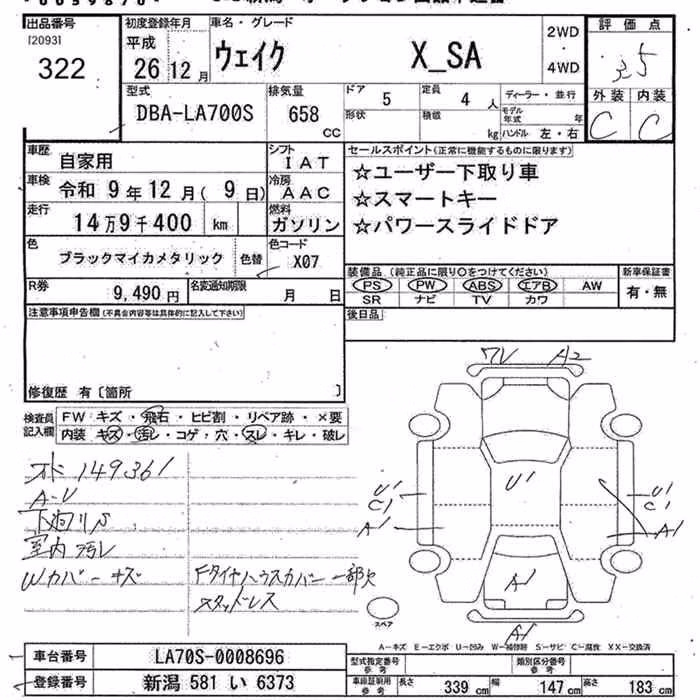 出品番号
[2093]
322
初度登録年月
平成
26 12 月
車名・グレード
ウェイク X_SA
2WD
4WD
評価点
3.5
外装 内装
C C
型式
DBA-LA700S
排気量
658 CC
ドア 5
定員 4 人
形状
積載 kg
ディーラー・並行
モデル年式 年
ハンドル 左・右
車歴 自家用
シフト IAT
車検 令和 9年 12月( 9日)
冷房 AAC
走行 14万9千400 km
燃料 ガソリン
色 ブラックマイカメタリック 色替
色コード X07
R券 9,490円
名変通知期限 月 日
セールスポイント(正常に機能するものに限ります)
☆ユーザー下取り車
☆スマートキー
☆パワースライドドア
装備品(純正品に限り○をつけてください)
PS PW ABS エアB AW
SR ナビ TV カワ
新車保証書
有・無
後日品
注意事項申告欄(不具合内容等は具体的に記入して下さい)
修復歴 有〔箇所 〕
検査員記入欄
FW キズ・飛石・ヒビ割・リペア跡・×要
内装 キズ・汚レ・コゲ・穴・スレ・キレ・破レ
149361
A-U
下廻りS
室内汚レ
Wカバーキズ
Fタイヤハウスカバー一部欠
スタッドレス
ワレ A2
U1
C1
A1
U1
U1
C1
A1
A1
A1
スペア
A-キズ E-エクボ U-凹み W-補修跡 S-サビ C-腐食 XX-交換済
車台番号 LA70S-0008696
登録番号 新潟 581 い 6373
型式指定番号 参考
類別区分番号 参考
車検証期用 参考
長さ 339 cm
幅 147 cm
高さ 183 cm